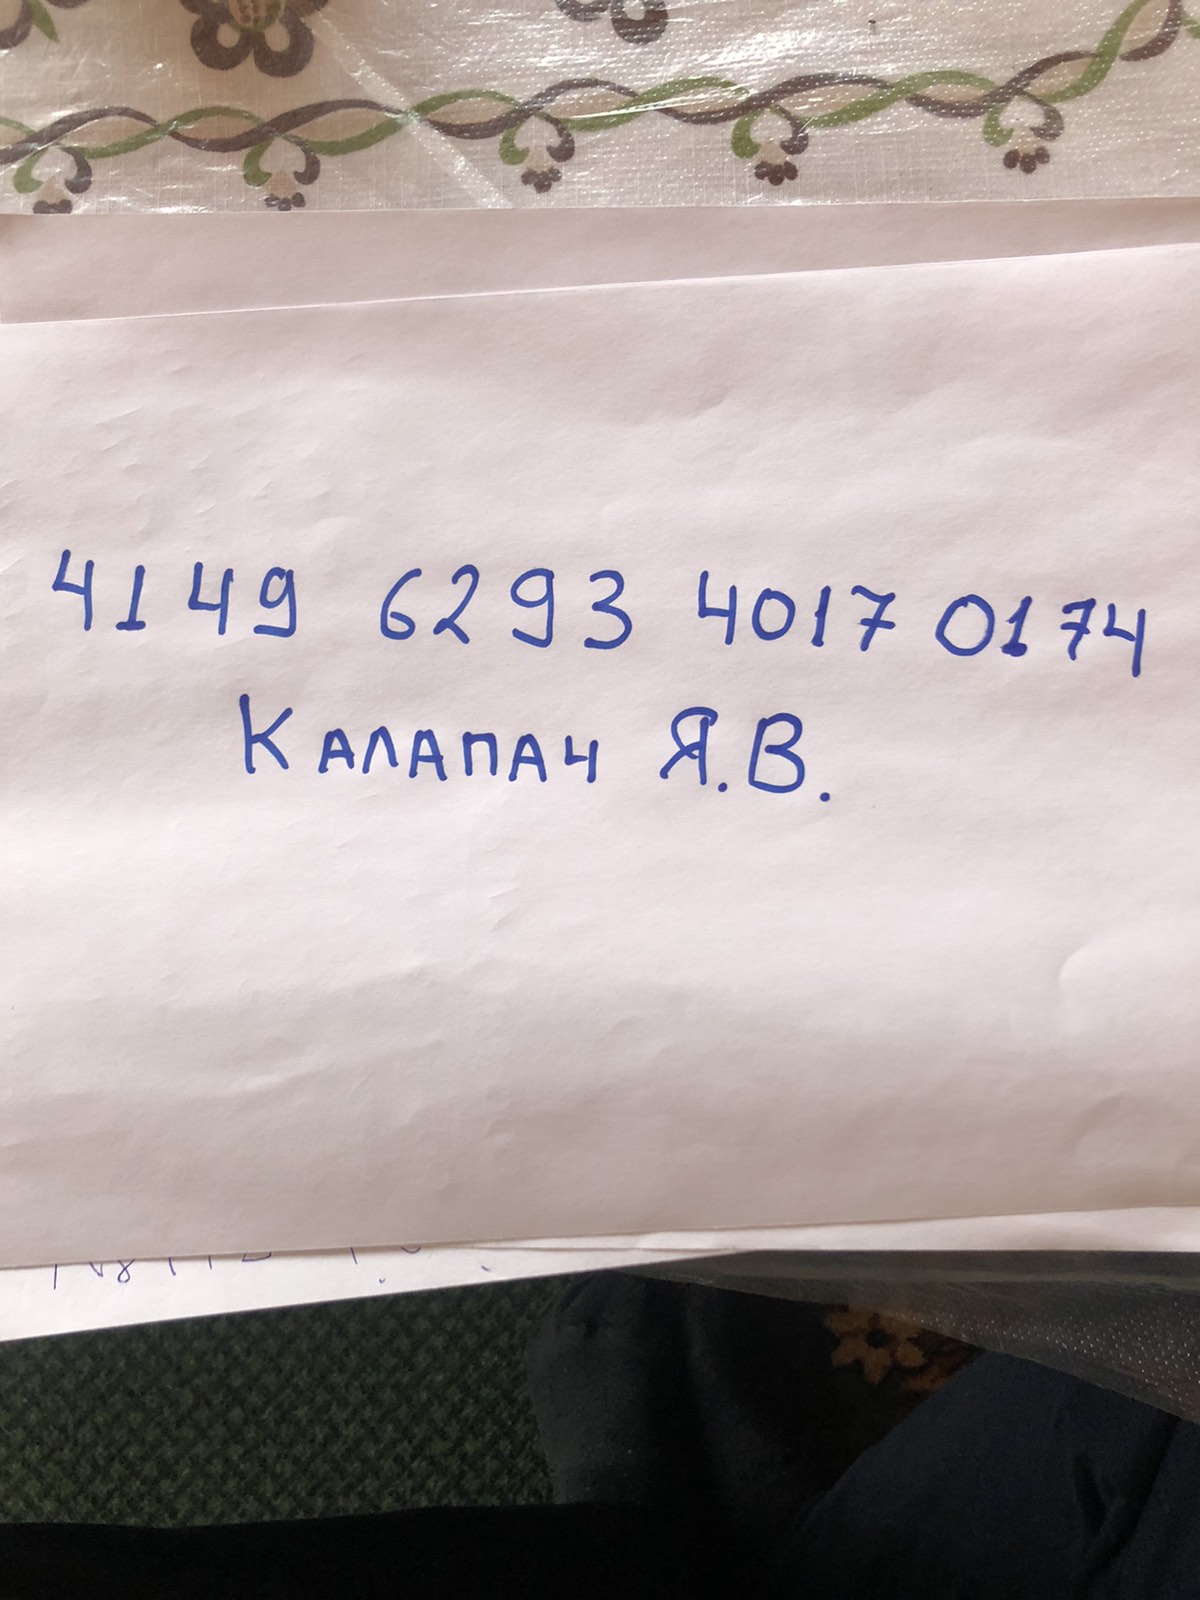 4149 6293 4017 0174
Калапач Я.В.